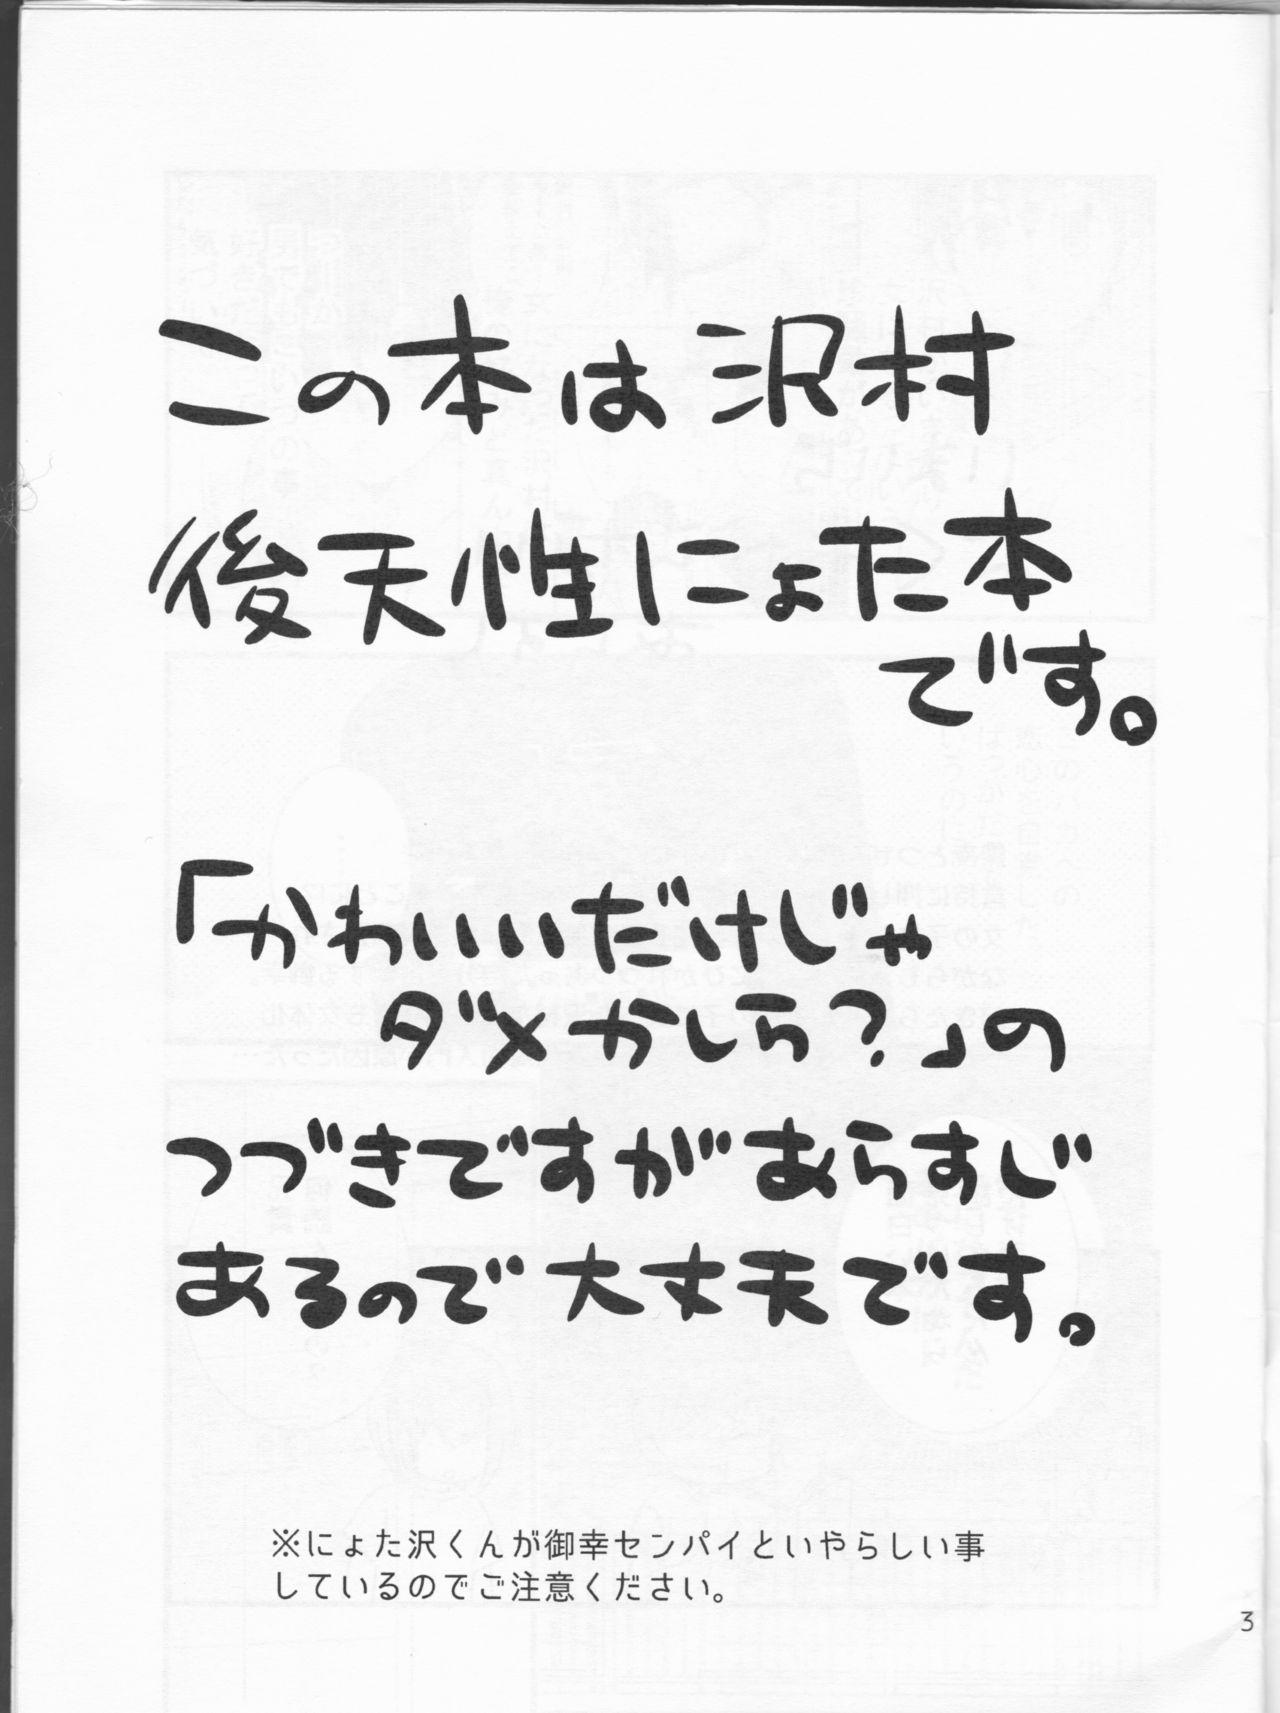 この本は沢村
後天性にょた本
です。
「かわいいだけじゃ
ダメかしら？」の
つづきですがあらすじ
あるので大丈夫です。
※にょた沢くんが御幸センパイといやらしい事
しているのでご注意ください。
3